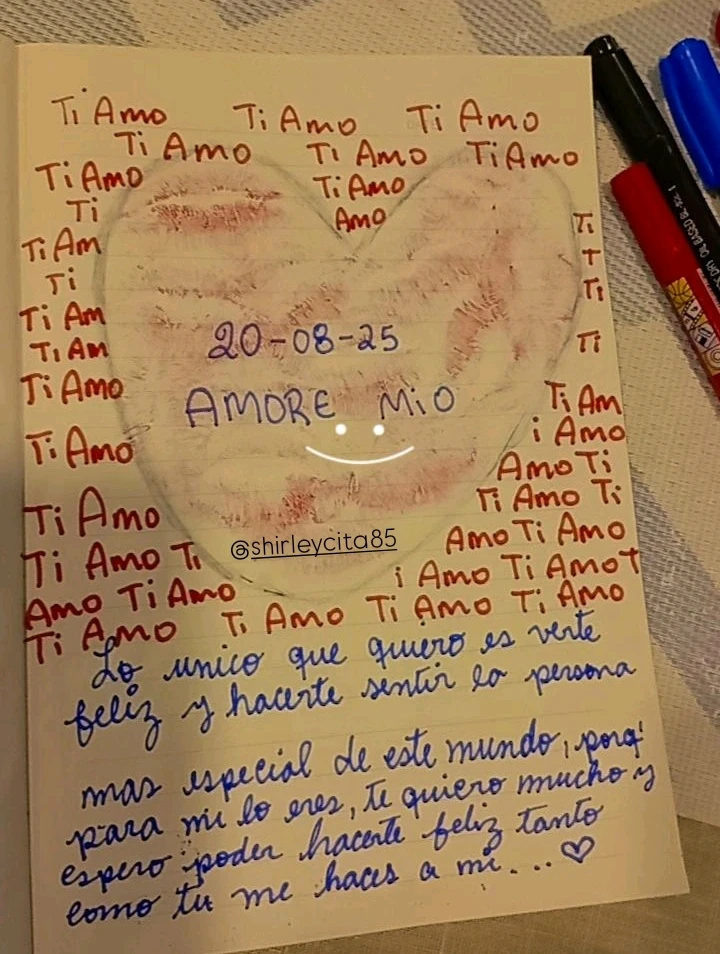 Ti Amo Ti Amo Ti Amo
Ti Amo Ti Amo Ti Amo
Ti Amo Ti Amo
Ti Amo
Ti Am Ti
Ti T
Ti Am Ti
Ti Am Ti
Ti Amo
20-08-25
AMORE MiO
Ti Am
Ti Amo i Amo
Amo Ti
Ti Amo Ti Amo Ti
@shirleycita85
Ti Amo Ti Amo Ti Amo
Amo Ti Amo i Amo Ti Amo T
Ti Amo Ti Amo Ti Amo Ti Amo
Lo unico que quiero es verte
feliz y hacerte sentir la persona
mas especial de este mundo, porq'
para mi lo eres, te quiero mucho y
espero poder hacerte feliz tanto
como tu me haces a mi...